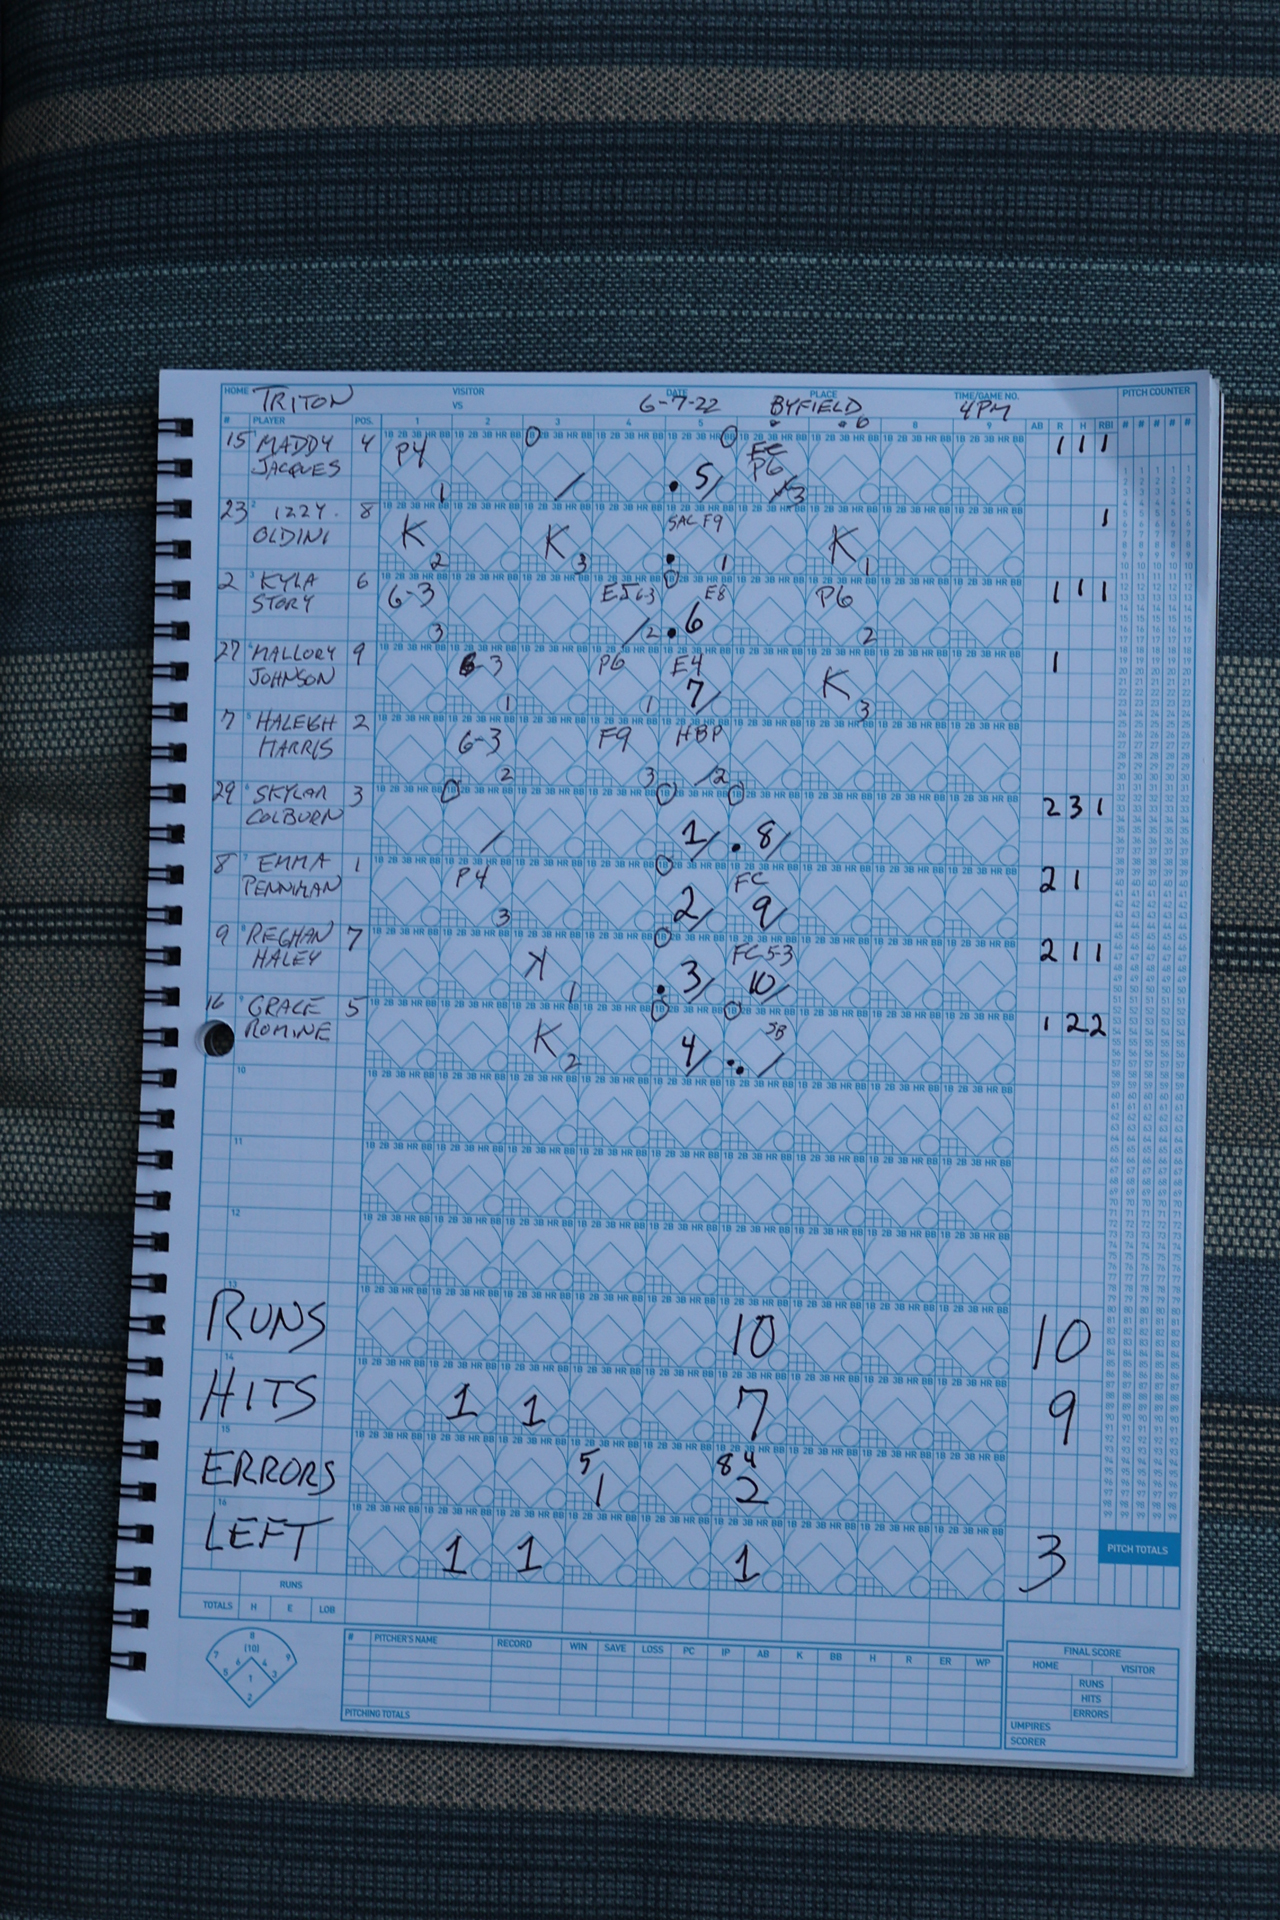 HOME TRITON VISITOR VS DATE 6-7-22 PLACE BYFIELD TIME/GAME NO. 4PM PITCH COUNTER
# PLAYER POS. 1 2 3 4 5 6 7 8 9 AB R H RBI # # # # #
15 MADDY JACQUES 4 P4 1 / . 5/ P6 3 1 1 1
23 IZZY OLDINI 8 K 2 K 3 SAC F9 . 1 K 1 1
2 KYLA STORY 6 6-3 3 E5 6-3 /2 E8 . 6 P6 2 1 1 1
27 MALLORY JOHNSON 9 6-3 1 P6 1 E4 7/ K 3 1
7 HALEIGH HARRIS 2 6-3 2 F9 3 HBP /2
29 SKYLAR COLBURN 3 / 1/ . 8/ 2 3 1
8 EMMA PENNIMAN 1 P4 3 2/ FC 9/ 2 1
9 REGHAN HALEY 7 K 1 . 3/ FC 5-3 10/ 2 1 1
16 GRACE ROMINE 5 K 2 4/ SB : / 1 2 2
10
11
12
13
RUNS 10 10
14
HITS 1 1 7 9
15
ERRORS 5 1 8 4 2
16
LEFT 1 1 1 3
PITCH TOTALS
RUNS
TOTALS H E LOB
# PITCHER'S NAME RECORD WIN SAVE LOSS PC IP AB K BB H R ER WP
7 8 (10) 9 5 6 4 3 1 2
PITCHING TOTALS
FINAL SCORE
HOME VISITOR
RUNS
HITS
ERRORS
UMPIRES
SCORER